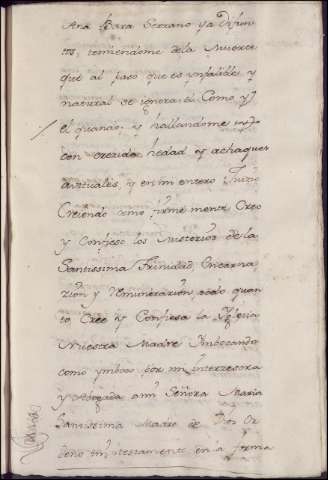 Ana Bara Serrano ya difun
tos, temiendome dela Muerte
que al paso que es ynfalible y
natural se ignora el Como y
el quando; y hallandome
con crecida hedad y achaques
avituales, y en mi entero Juizio
Creiendo como firme mente Creo
y Confieso los Misterios de la
Santissima Trinidad, Encarna
zion y Remunerazion, todo quan
to Cree y Confiesa la Yglesia
Nuestra Madre Imbocando
como ymboco por mi interzesora
y Abogada a mi Señora Maria
Santissima Madre de Dios Or
deno mi testamento en la forma